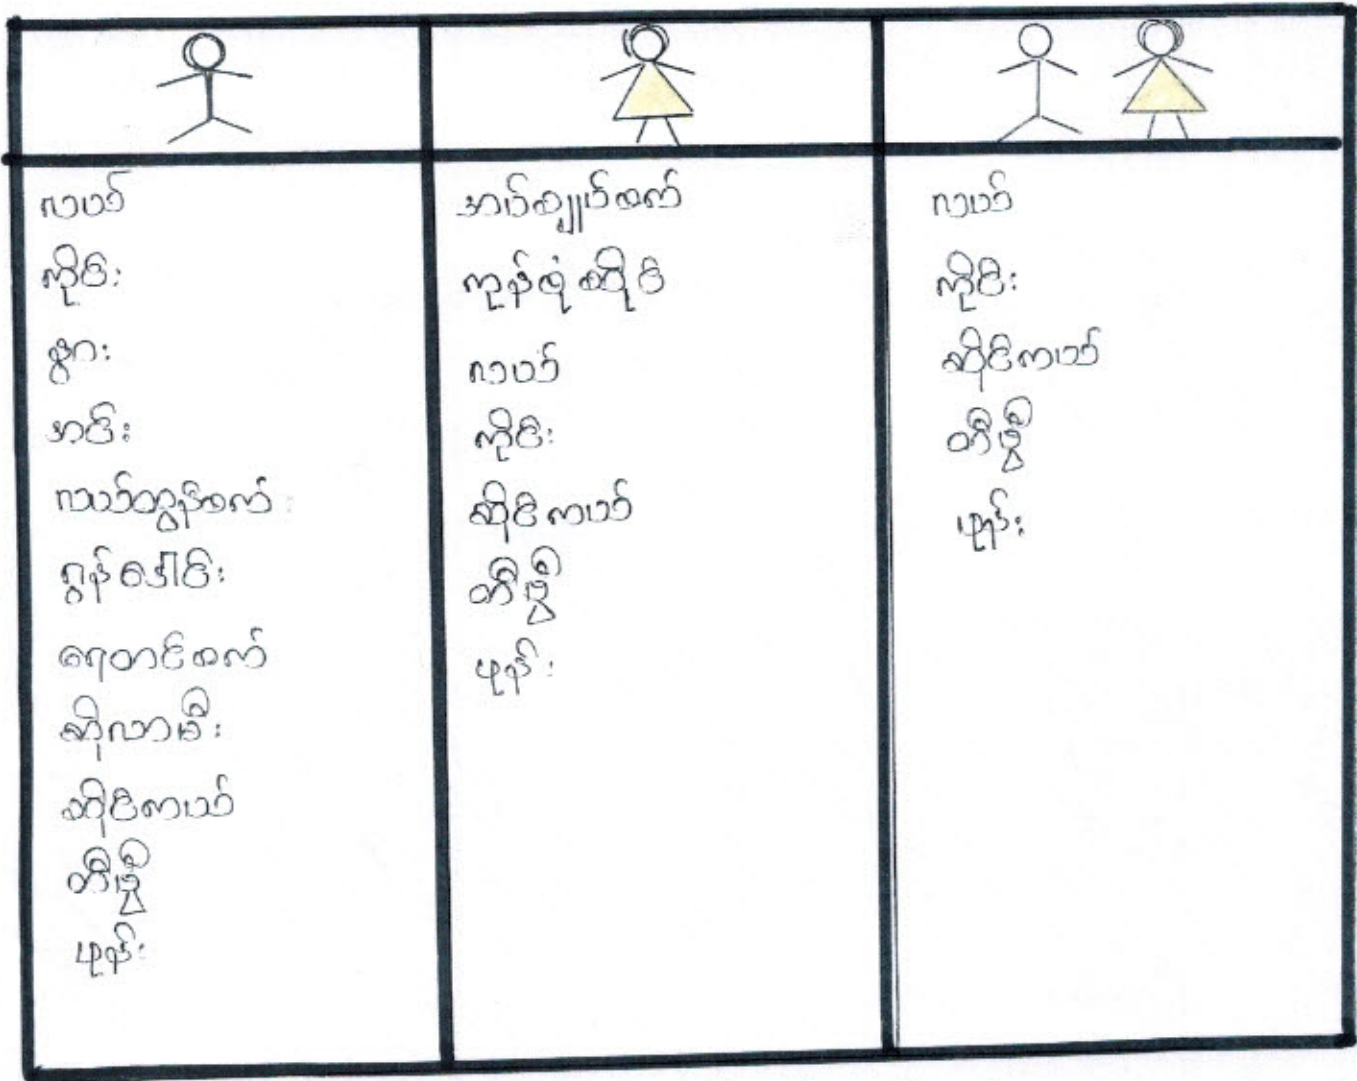 လယ်
ကိုင်း
နွား
အင်း
လယ်ထွန်စက်
ရွန်ဒေါင်း
ရေတင်စက်
ဆိုလာမီး
ဆိုင်ကယ်
တီဗွီ
ဖုန်း
အပ်ချုပ်စက်
ကုန်စုံဆိုင်
လယ်
ကိုင်း
ဆိုင်ကယ်
တီဗွီ
ဖုန်း
လယ်
ကိုင်း
ဆိုင်ကယ်
တီဗွီ
ဖုန်း